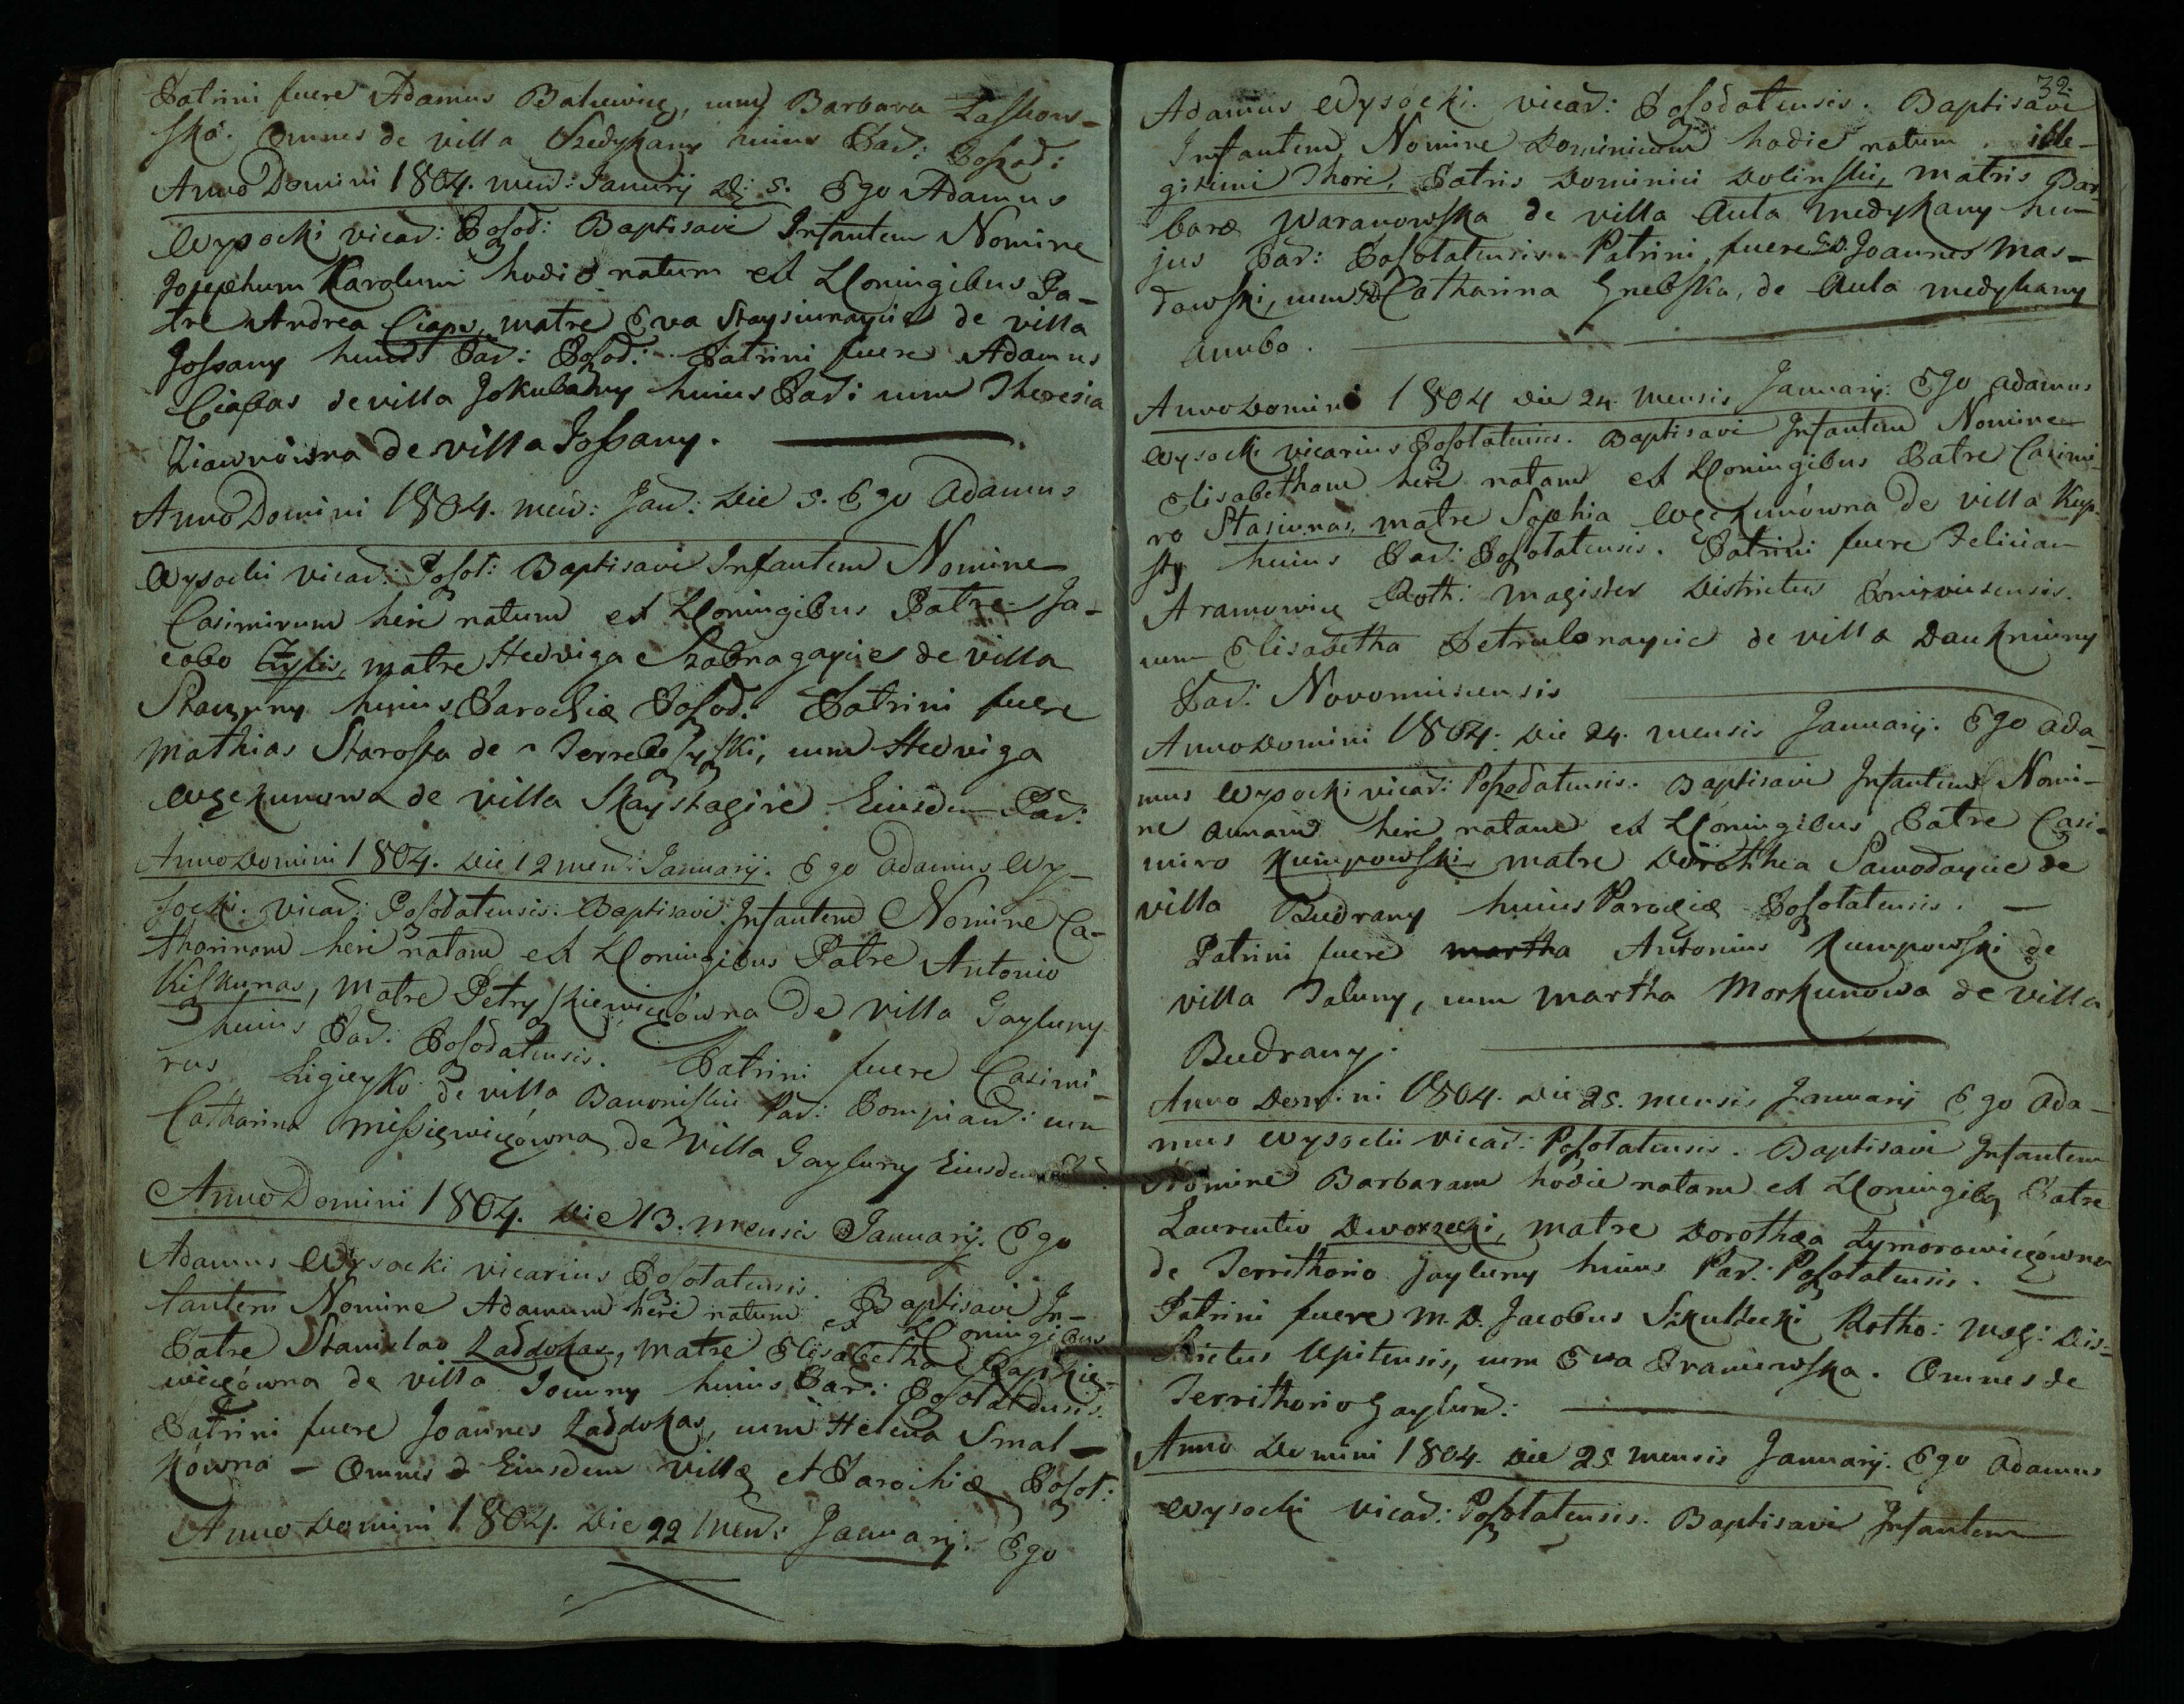 Patrini fuere Adamus Balcewicz, cum Barbara Laskow-
ska. Omnes de villa huius Par: Posod:
Anno Domini 1804. men: Januarij d: 5. Ego Adamus
Wysocki vicar: Posod: Baptisavi Infantem Nomine
Josephum Karolum hodie natum ex LConiugibus Pa-
tre Andrea Ciapas, matre Eva de villa
Jossany huius Par: Posod: Patrini fuere Adamus
Ciapas de villa Jokubany huius Par: cum Theresia
de villa Jossany.
Anno Domini 1804. men: Jan: Die 5. Ego Adamus
Wysocki vicar: Posot: Baptisavi Infantem Nomine
Casimirum heri natum ex LConiugibus Patre Ja-
cobo matre Hedviga de villa
huius Parochiæ Posod. Patrini fuere
Mathias Starosta de cum Hedviga
de villa Eiusdem Par:
Anno Domini 1804. Die 12 men: Januarij. Ego Adamus Wy-
socki. vicar: Posodatensis. Baptisavi Infantem Nomine Ca-
tharinam heri natam ex LConiugibus Patre Antonio
Kiskunas, Matre Petryskiewiczówna De villa Gayluny
huius Par: Posodatensis. Patrini fuere Casimi-
rus Ligieyko de villa Par: cum
Catharina Missiewiczówna de villa Gayluny Eiusdem
Anno Domini 1804. Die 13. mensis Januarij. Ego
Adamus Wysocki vicarius Posotatensis. Baptisavi In-
fantem Nomine Adamum heri natum ex LConiugibus
Patre Stanislao Laddukas, matre Elisabetha
de villa Joniuny huius Par: Posotatensis.
Patrini fuere Joannes Laddukas, cum Helena Smal-
kówna - Omnes d Eiusdem villæ et Parochiæ Posot:
Anno Domini 1804. Die 22 men: Januarij. Ego
32
Adamus Wysocki. vicar: Posodatensis. Baptisavi
Infantem Nomine Dominicum hodie natum ille-
gitimi Thori, Patris Dominici Dolinski, matris Bar-
baræ Waranowska de villa Aula Medykany hu-
jus Par: Posotatensis. Patrini fuere G.D. Joannes Mas-
dowski, cum GD Catharina Gnebska, de Aula Medykany
Ambo.
Anno Domini 1804 Die 24. mensis Januarij: Ego Adamus
Wysocki vicarius Posotatensis. Baptisavi Infantem Nomine
Elisabetham heri natam ex LConiugibus Patre Casimi-
ro Stasiunas, matre Sophia de villa Kup-
sty huius Par: Posotatensis. Patrini fuere Felician
Aramowicz Roth: Magister Districtus
cum Elisabetha de villa Daukniuny
Par: Novomiscensis
Anno Domini 1804. Die 24. mensis Januarij. Ego Ada-
mus Wysocki vicar: Posodatensis. Baptisavi Infantem Nomi-
ne Annam heri natam ex LConiugibus Patre Casi-
miro Kumpowski matre Dorothea de
villa Budrany huius Parochiæ Posotatensis. -
Patrini fuere martha Antonius Kumpowski de
villa Taluny, cum Martha Morkunowa de villa
Budrany.
Anno Domini 1804. Die 25. mensis Januarij Ego Ada-
mus Wysocki vicar: Posotatensis. Baptisavi Infantem
Nomine Barbaram hodie natam ex LConiugibq Patre
Laurentio Dworzecki, matre Dorothea Zymorowiczówna
de Territhorio Gayluny huius Par: Posotatensis. -
Patrini fuere M.D. Jacobus Szkultecki Rotho: Mag: Dis-
trictus Upitensis, cum Eva Franiewska. Omnes de
Territhorio Gaylun:
Anno Domini 1804. Die 25 mensis Januarij. Ego Adamus
Wysocki vicar: Posotatensis. Baptisavi Infantem